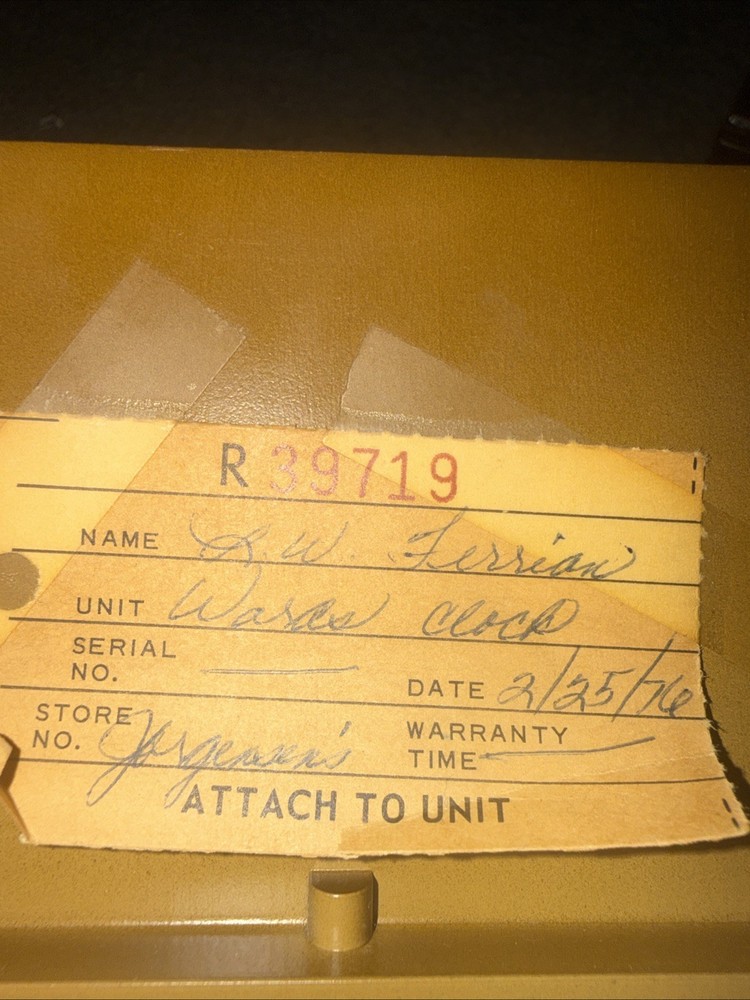 R 39719
NAME L.W. Ferrian
UNIT Wards clock
SERIAL
NO.
DATE 2/25/76
STORE
NO. Jorgensen's
WARRANTY
TIME
ATTACH TO UNIT